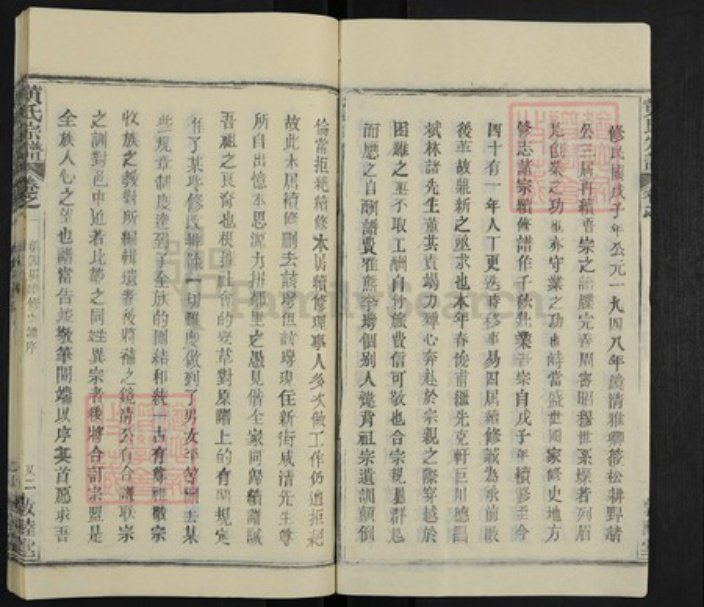 修民國戊子年公元一九四八年鏡清雅卿後松耕野諸
公三屆再續吾宗之譜牒完善周密昭穆世系燦若列眉
是創業之功也亦守業之功也時當盛世國家修史地方
修志諸宗續修譜作千秋壯業吾宗自戊子年續修至今
四十有一年人丁更迭時移事易四屆續修誠為承前啟
後革故鼎新之亟求也本年春俊甫繼先克軒巨川德昌
斌林諸先生董其責竭力殫心奔赴於宗親之際穿越於
困難之巫不取工酬自付旅費信可敬也合宗視星群起
而應之自酬譜費雅應李塆個別人競背祖宗遺訓顛倒
倫當拒絕續修本屆續修理事人多次做工作仍遭拒絕
故此本居續修刪去該塆但該塆現住新街咸清先生尊
所自出憶本思源力排鄉里之愚見偕全家同歸續譜誠
吾祖之良裔也根據社會的變革對原譜上的有關規定
作了某些修改排除一切難度做到了男女平等刪去某
些規章制度達到了全族的團結和統一古有尊祖敬宗
收族之教對所編輯遺書後將補之鏡清公有合譜聯宗
之訓對邑中近若比鄰之同姓異宗者後將合訂宗盟是
全族人心之望也譜當告竣敬筆開端以序其首愿求吾
黃氏宗譜
卷之一
第四屆續修宗譜序
敦睦堂